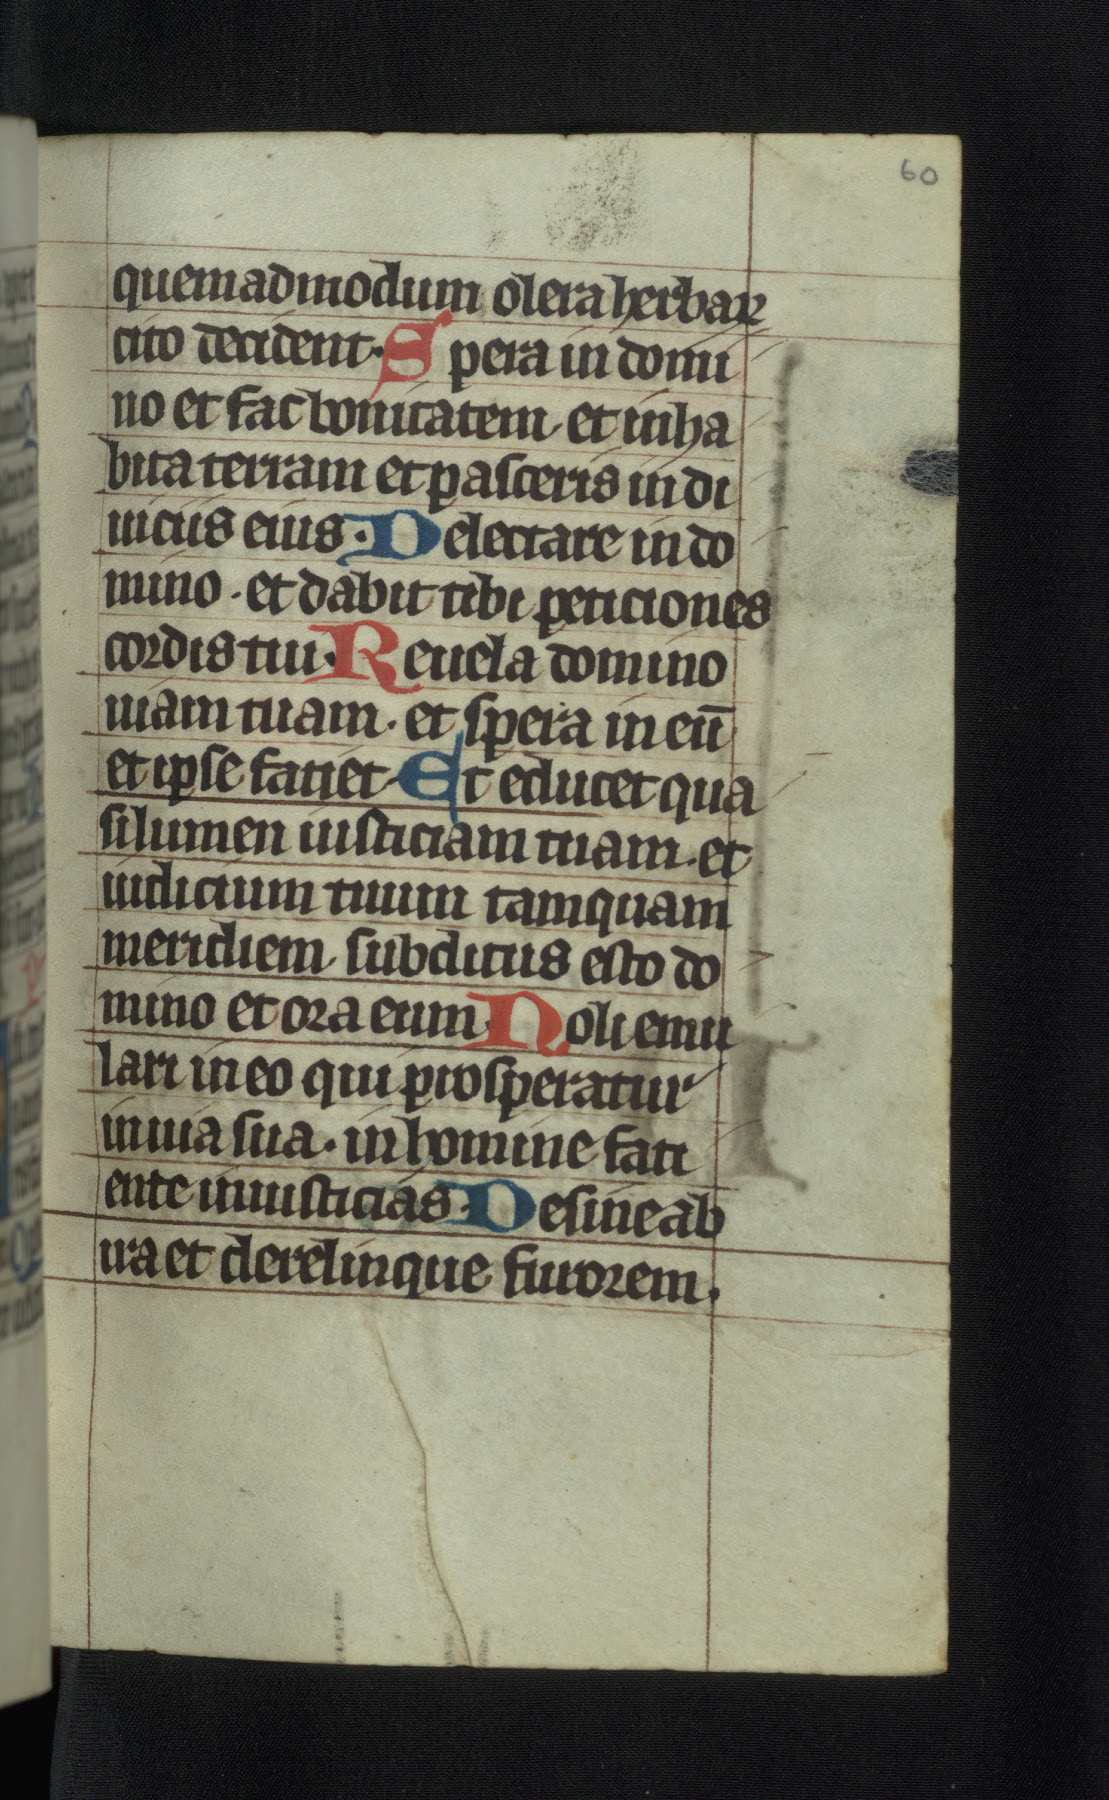 60
quemadmodum olera herbaꝝ
cito decident· Spera in domi
no et fac bonitatem· et inha
bita terram et pasceris in di
uicus eius· Delectare in do
mino· et dabit tibi peticiones
cordis tui· Reuela domino
uiam tuam· et spera in eū
et ipse faciet· Et educet qua
si lumen iusticiam tuam· et
iudicium tuum tamquam
meridiem· subditus esto do
mino et ora eum· Noli emu
lari in eo qui prosperatur
in uia sua· in homine faci
ente iniusticias· Desine ab
ira et derelinque furorem·